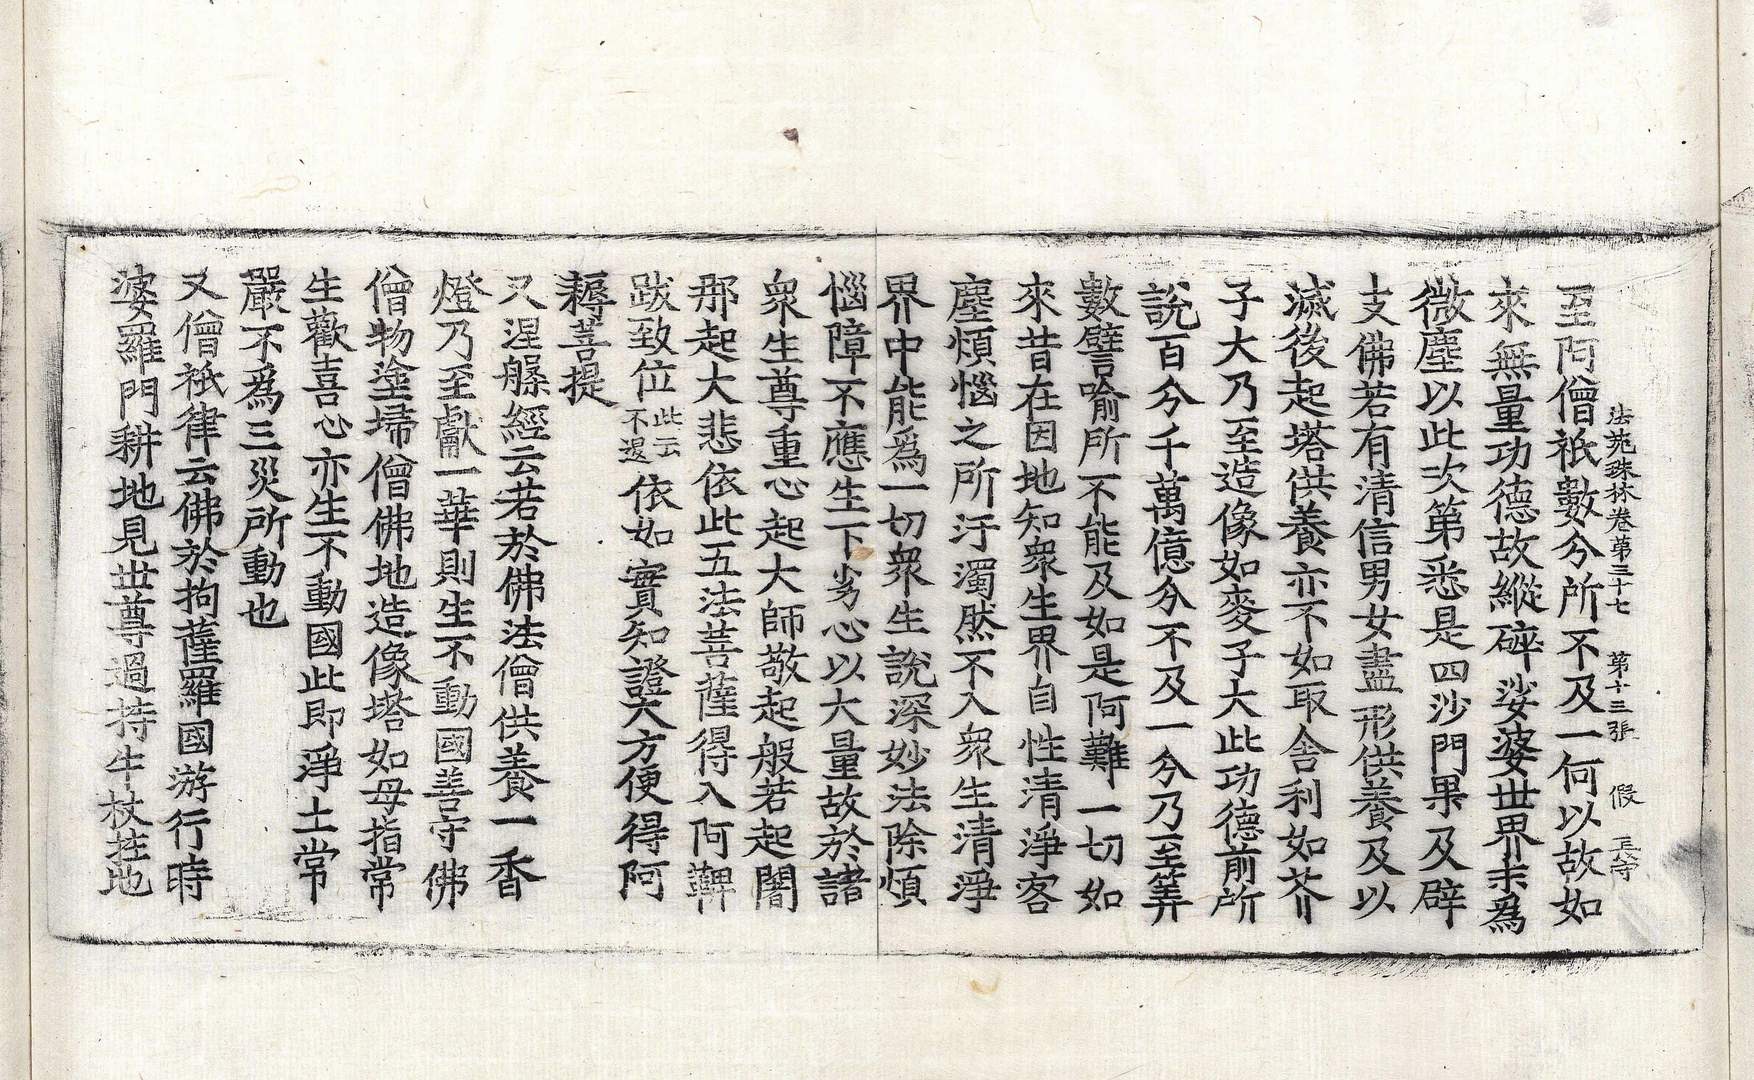 法苑珠林卷第三十七 第十三張 假
至阿僧祇數分所不及一何以故如
來無量功德故縱碎娑婆世界末爲
微塵以此次第悉是四沙門果及辟
支佛若有清信男女盡形供養及以
滅後起塔供養亦不如取舍利如芥
子大乃至造像如麥子大此功德前所
說百分千萬億分不及一分乃至筭
數譬喻所不能及如是阿難一切如
來昔在因地知衆生界自性清淨客
塵煩惱之所汙濁然不入衆生清淨
界中能爲一切衆生說深妙法除煩
惱障不應生下劣心以大量故於諸
衆生尊重心起大師敬起般若起闍
那起大悲依此五法菩薩得入阿鞞
跋致位此云不退依如實知證大方便得阿
耨菩提
又涅槃經云若於佛法僧供養一香
燈乃至獻一華則生不動國善守佛
僧物塗埽僧佛地造像塔如母指常
生歡喜心亦生不動國此即淨土常
嚴不爲三災所動也
又僧祇律云佛於拘薩羅國游行時
婆羅門耕地見世尊過持牛杖拄地